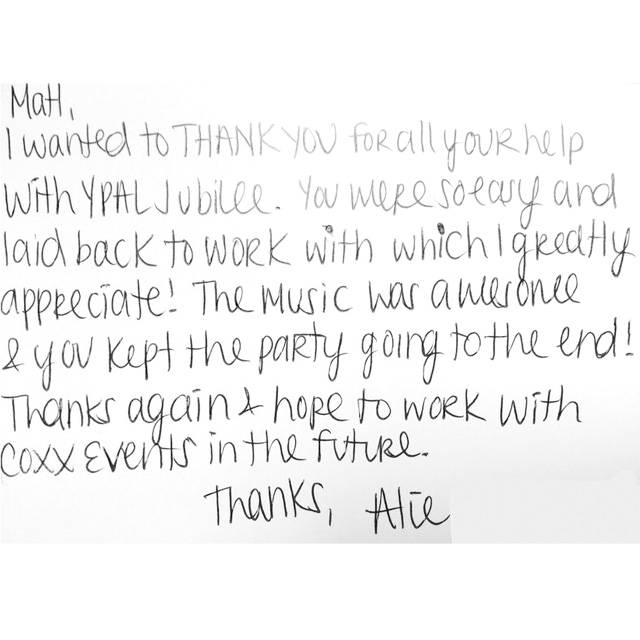 Matt,
I wanted to THANK YOU for all your help
with YPAL Jubilee. You were so easy and
laid back to work with which I greatly
appreciate! The music was awesome
& you kept the party going to the end!
Thanks again & hope to work with
COXX Events in the future.
Thanks, Alie